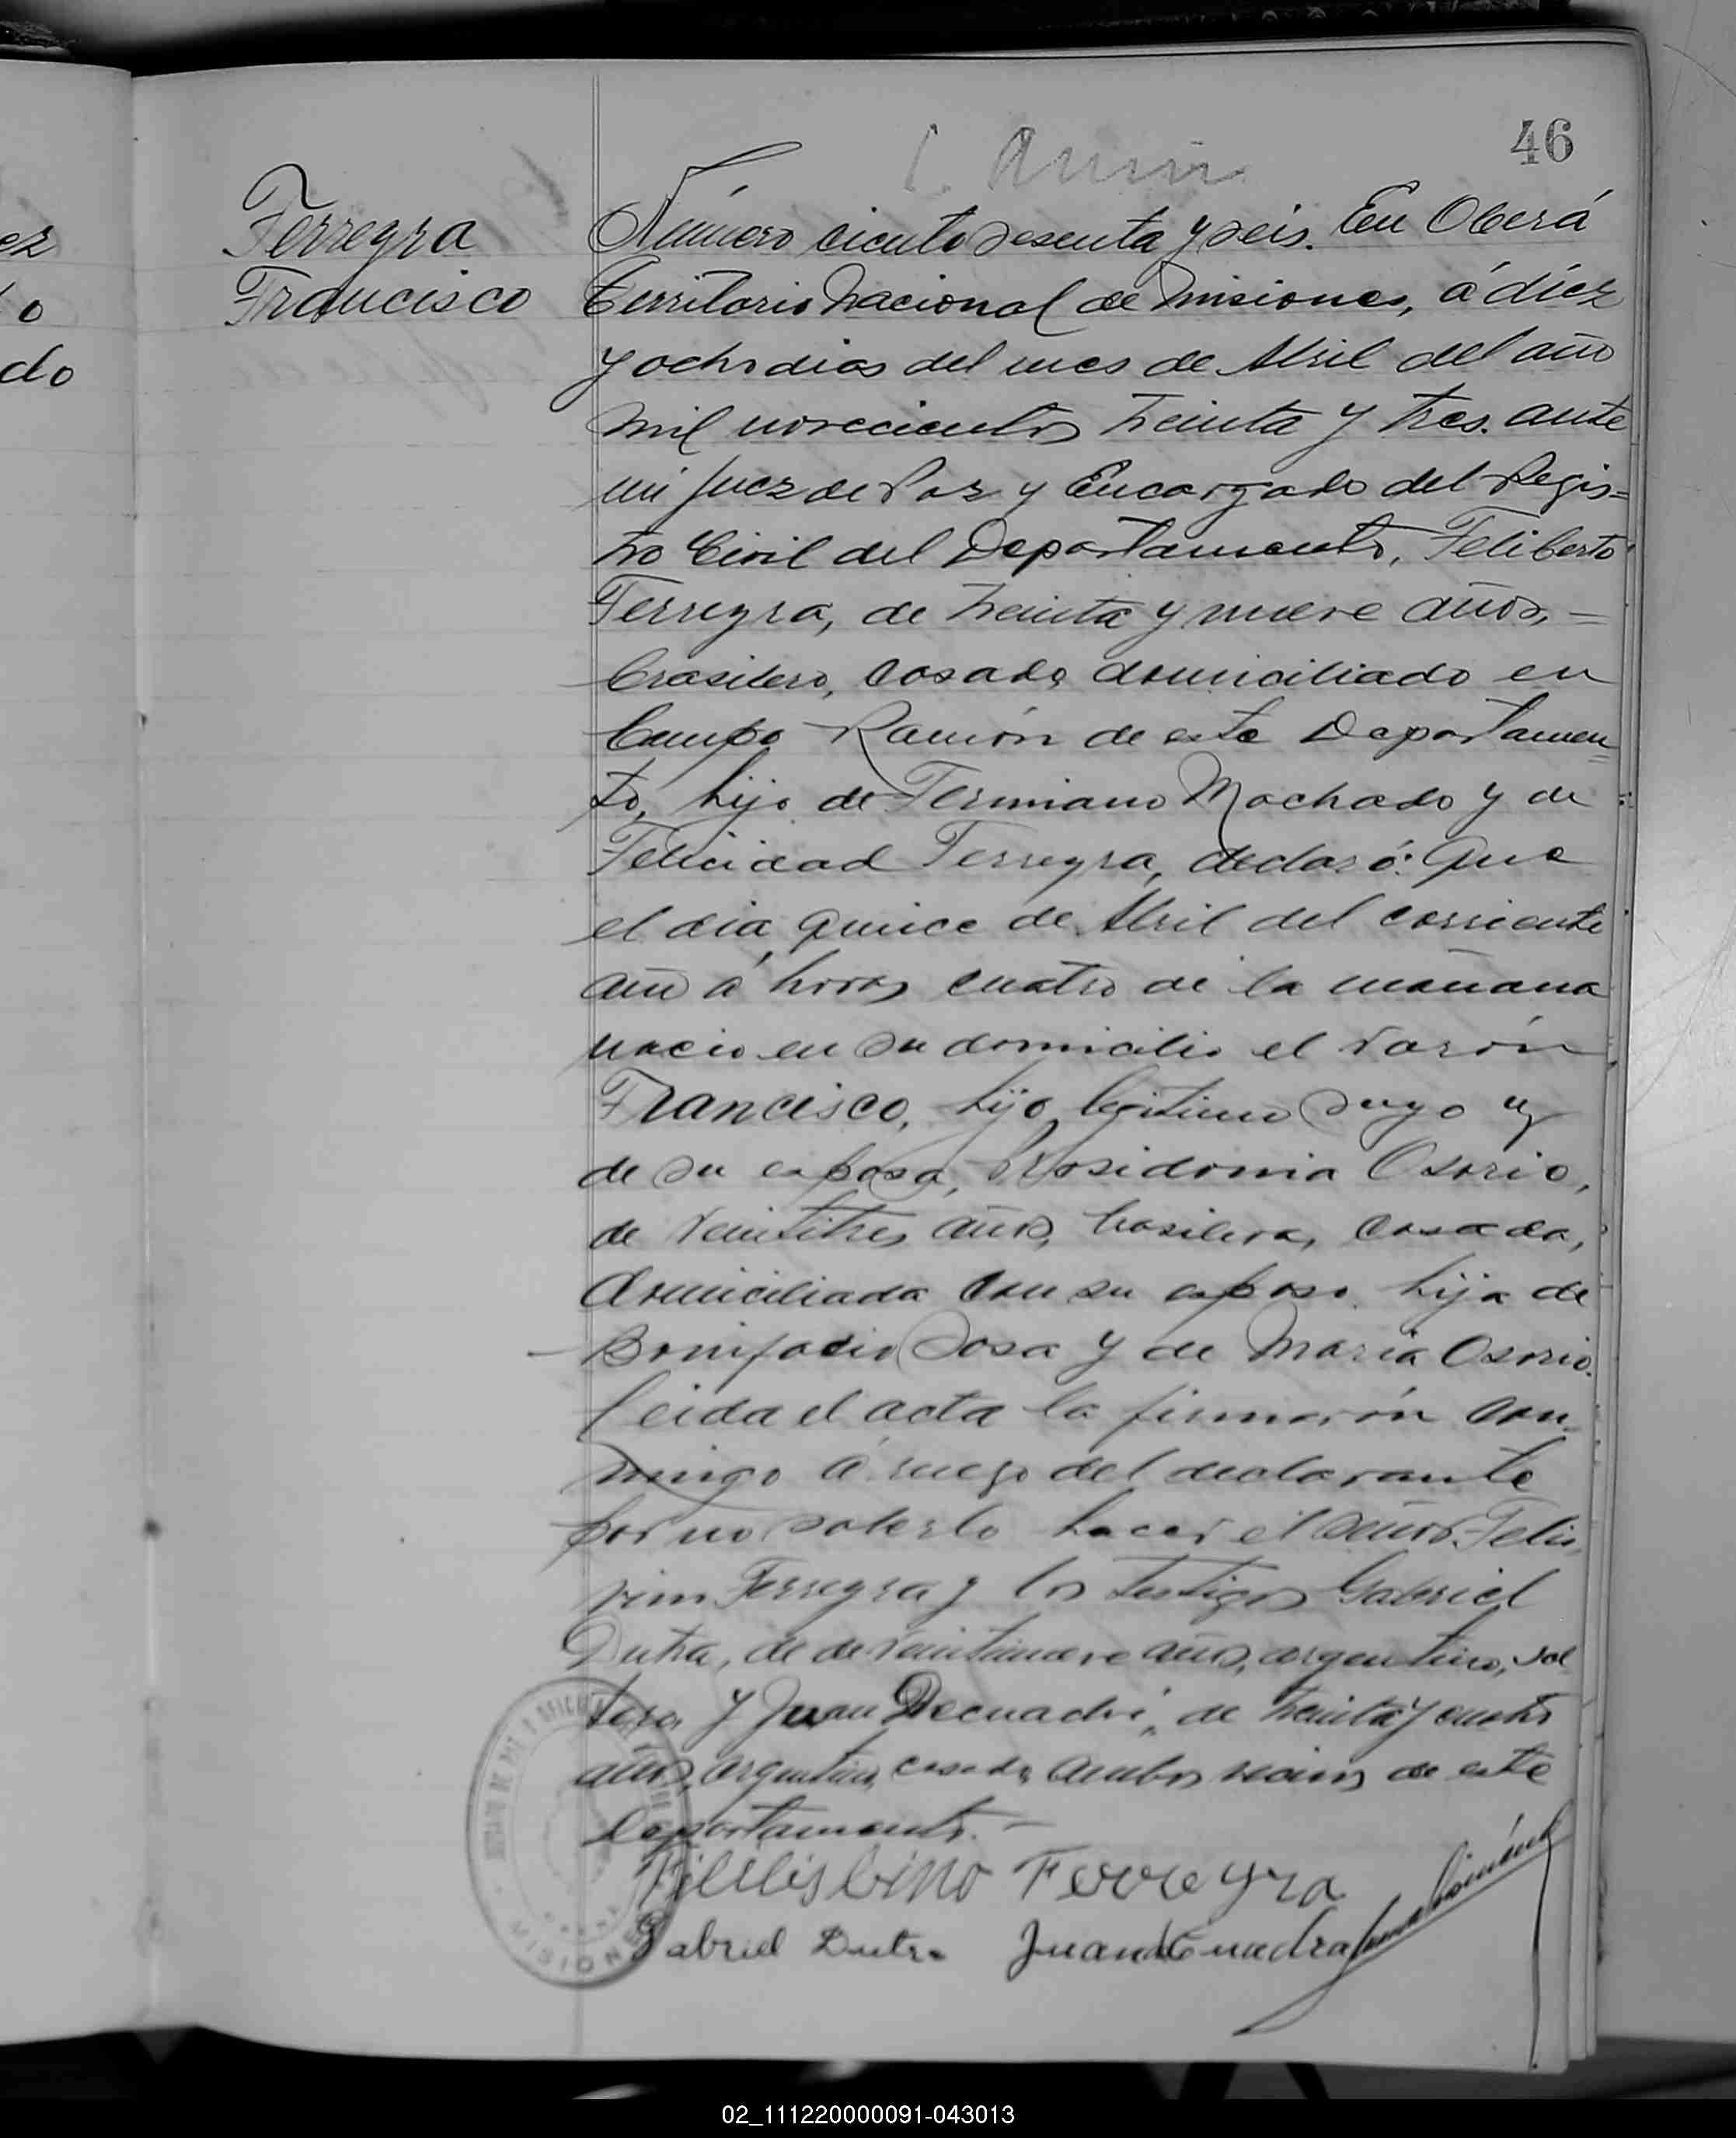 46
Ferreyra
Francisco
Número ciento sesenta y seis. En Oberá
Territorio Nacional de Misiones, á diez
y ocho dias del mes de Abril del año
mil novecientos treinta y tres. ante
mi Juez de Paz y Encargado del Regis=
tro Civil del Departamento, Feliberto
Ferreyra, de treinta y nueve años,=
brasilero, casado domiciliado en
Campo Ramón de este Departamen=
to, hijo de Fermiano Machado y de
Felicidad Ferreyra, declaró: Que
el dia quince de Abril del corriente
año á horas cuatro de la mañana
nacio en su domicilio el varón
Francisco, hijo legitimo suyo y
de su esposa, Osorio,
de veintitres años, brasilera, casada,
domiciliada con su esposo, hija de
Bonifacio Sosa y de Maria Osorio.
Leida el acta la firmarón con=
migo á ruego del declarante
por no saberlo hacer el señor
Ferreyra y los testigos Gabriel
Dutra, de de veintinueve años, argentino, sol
tero, y Juan de treinta y cuatro
años, argentino, casado, ambos vecinos de este
Departamento.—
Ferreyra
Gabriel Dutra Juan
MISIONES
02_111220000091-043013